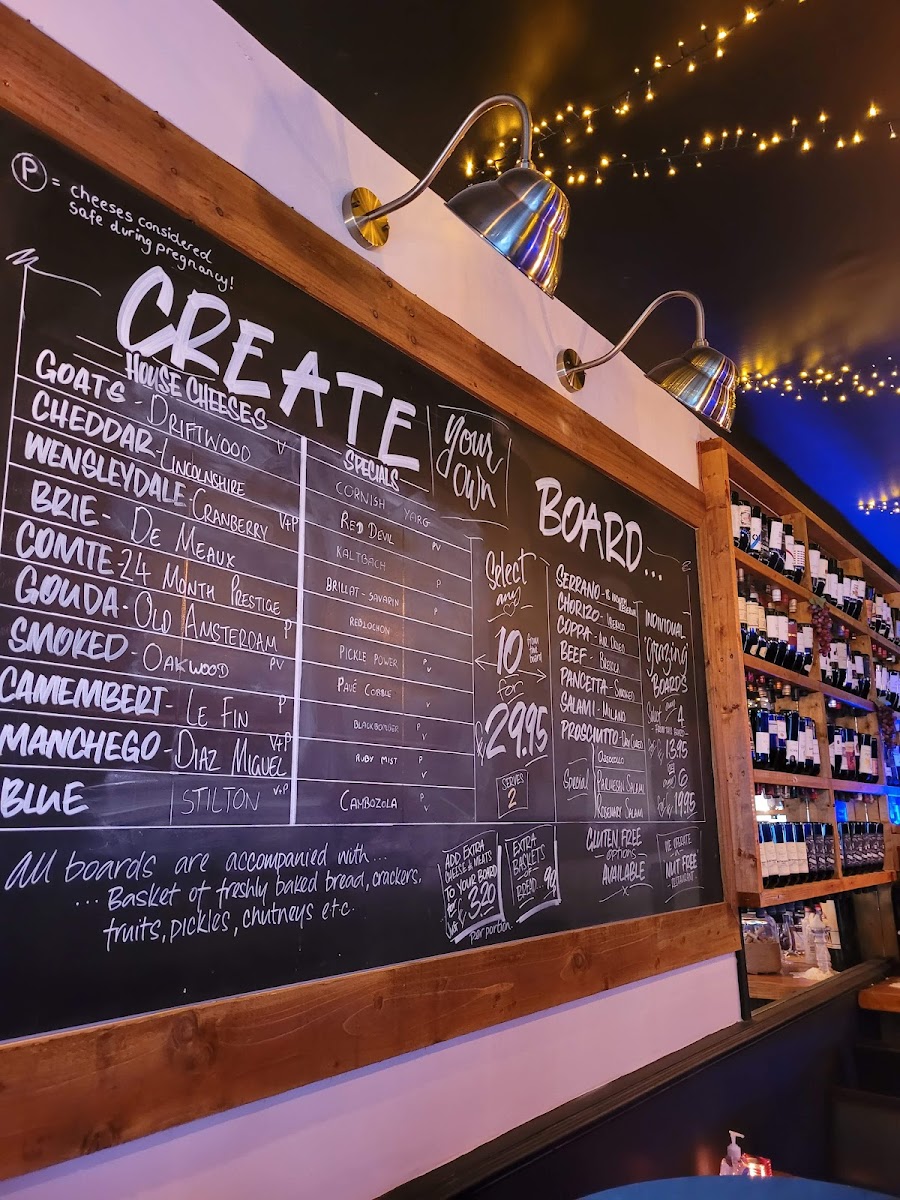 P = cheeses considered
safe during pregnancy!
CREATE
Your
Own
BOARD...
HOUSE CHEESES
GOATS - DRIFTWOOD V
CHEDDAR - LINCOLNSHIRE
WENSLEYDALE - CRANBERRY V+P
BRIE - DE MEAUX
COMTE - 24 MONTH PRESTIGE P
GOUDA - OLD AMSTERDAM
SMOKED - OAKWOOD PV
CAMEMBERT - LE FIN P
MANCHEGO - DIAZ MIGUEL V+P
BLUE STILTON V+P
SPECIALS
CORNISH YARG
RED DEVIL PV
KALTBACH P
BRILLAT-SAVARIN P
REBLOCHON
PICKLE POWER P V
PAVÉ COBBLE
BLACKBOMBER P V
RUBY MIST P V
CAMBOZOLA P V
Select
any
10 from the board
for
£29.95
SERVES
2
SERRANO -
CHORIZO - IBERICO
COPPA - AIR DRIED
BEEF -
PANCETTA - SMOKED
SALAMI - MILANO
PROSCIUTTO - DRY CURED
Special
PARMESAN SALAMI
ROSEMARY SALAMI
INDIVIDUAL
'Grazing'
BOARDS
Select any 4
for £13.95
6
for £19.95
All boards are accompanied with...
...Basket of freshly baked bread, crackers,
fruits, pickles, chutneys etc.
ADD EXTRA
CHEESE & MEATS
TO YOUR BOARD
for
Just £3.20
per portion.
EXTRA
BASKETS
OF
BREAD .90
GLUTEN FREE
OPTIONS
AVAILABLE
NUT FREE
RESTAURANT